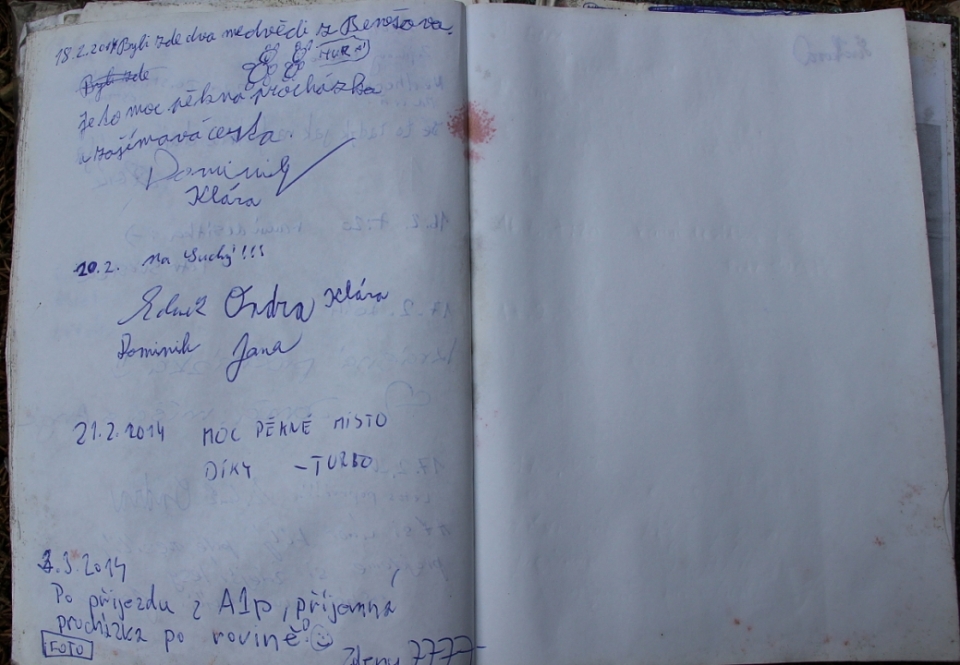 18.2.2014 Byli zde dva medvědi z Benešova.
Byli zde
Je to moc pěkná procházka
a zajímavá cesta.
Dominik
Klára
20.2. Na Suchý!!!
Ondra Klára
Dominik Jana
21.2.2014 MOC PĚKNÉ MÍSTO
DÍKY - TURBO
3.3.2014
Po příjezdu z A1p, příjemná
procházka po rovině
FOTO
7777